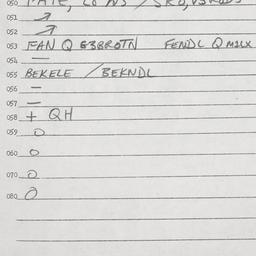 050
051 ↗
052 ↗
053 FAN Q G3BROTN FENDL Q M1LX
054 —
055 BEKELE / BEKNDL
056 —
057 —
058 + QH
059 O
060 O
070 O
080 O